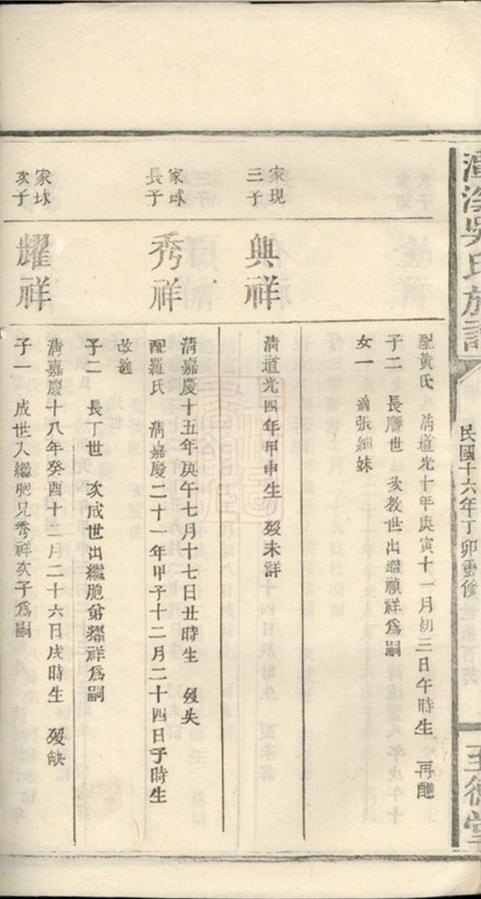 吳氏族譜
民國十六年丁卯重修
至德堂
黃氏 清道光十年庚寅十一月初三日午時生 再醮
子二 長 世 次教世出繼 祥爲嗣
女一 適張 妹
家現三子
興祥
清道光四年甲申生 歿未詳
家球長子
秀祥
清嘉慶十五年庚午七月十七日丑時生 歿失
配羅氏 清嘉慶二十一年甲子十二月二十四日子時生
改適
子二 長丁世 次成世出繼胞弟耀祥爲嗣
家球次子
耀祥
清嘉慶十八年癸酉十二月二十六日戌時生 歿缺
子一 成世入繼胞兄秀祥次子爲嗣